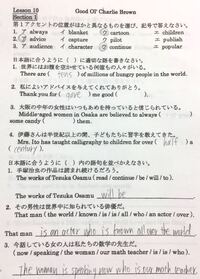 Lesson 10 Good Ol' Charlie Brown
Section 1
1 アクセントの位置がほかと異なるものを選び、記号で答えなさい。
1. ア always イ blanket ウ cartoon エ children
2. ア advice イ capture ウ pilot エ publish
3. ア audience イ character ウ continue エ popular
日本語に合うように( )に適切な語を書きなさい。
1. 世界にはお腹を空かせている何億もの人々がいる。
There are ( tens ) of millions of hungry people in the world.
2. 私によいアドバイスを与えてくれてありがとう。
Thank you for ( ) me good ( ).
3. 大阪の中年の女性はいつもあめを持っていると信じられている。
Middle-aged women in Osaka are believed to always ( )
some candy ( ) them.
4. 伊藤さんは半世紀以上の間、子どもたちに習字を教えてきた。
Mrs. Ito has taught calligraphy to children for over ( half ) a
( century ).
日本語に合うように( )内の語句を並べかえなさい。
1. 手塚治虫の作品は読まれ続けるだろう。
The works of Tezuka Osamu ( read / continue / be / will / to ).
The works of Tezuka Osamu will be
2. その男性は世界中に知られている俳優だ。
That man ( the world / known / is / is / all / who / an actor / over ).
That man is an actor who is known all over the world.
3. 今話している女の人は私たちの数学の先生だ。
( now / speaking / the woman / our math teacher / is / is / who ).
The woman is speaking now who is our math teacher